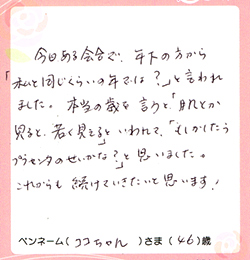 今日ある会合で、年下の方から
「私と同じくらいの年では？」と言われ
ました。本当の歳を言うと「肌とか
見ると、若く見える」といわれて、「もしかしたら
プラセンタのせいかな？」と思いました。
これからも続けていきたいと思います！
ペンネーム(ココちゃん)さま(46)歳